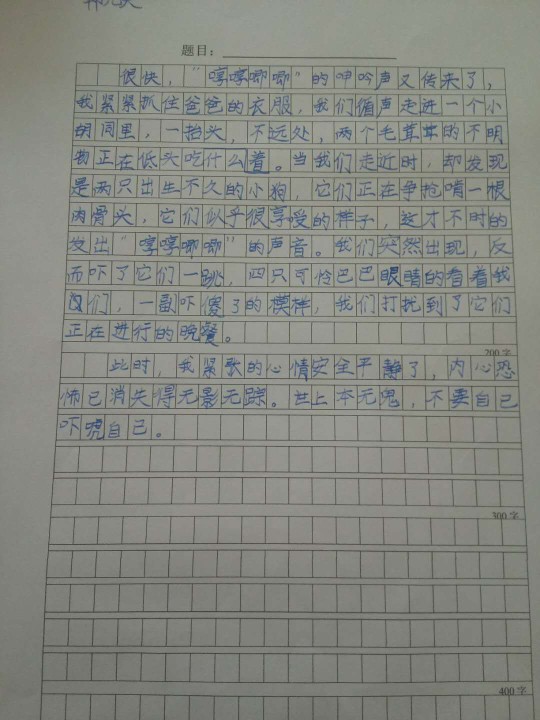 题目：
很快，“哼哼唧唧”的呻吟声又传来了，
我紧紧抓住爸爸的衣服，我们循声走进一个小
胡同里，一抬头，不远处，两个毛茸茸的不明
物正在低头吃什么着。当我们走近时，却发现
是两只出生不久的小狗，它们正在争抢啃一根
肉骨头，它们似乎很享受的样子，这才不时的
发出“哼哼唧唧”的声音。我们突然出现，反
而吓了它们一跳，四只可怜巴巴眼睛的看着我
们，一副吓傻了的模样，我们打扰到了它们
正在进行的晚餐。
200字
此时，我紧张的心情安全平静了，内心恐
怖已消失得无影无踪。世上本无鬼，不要自己
吓唬自己。
300字
400字